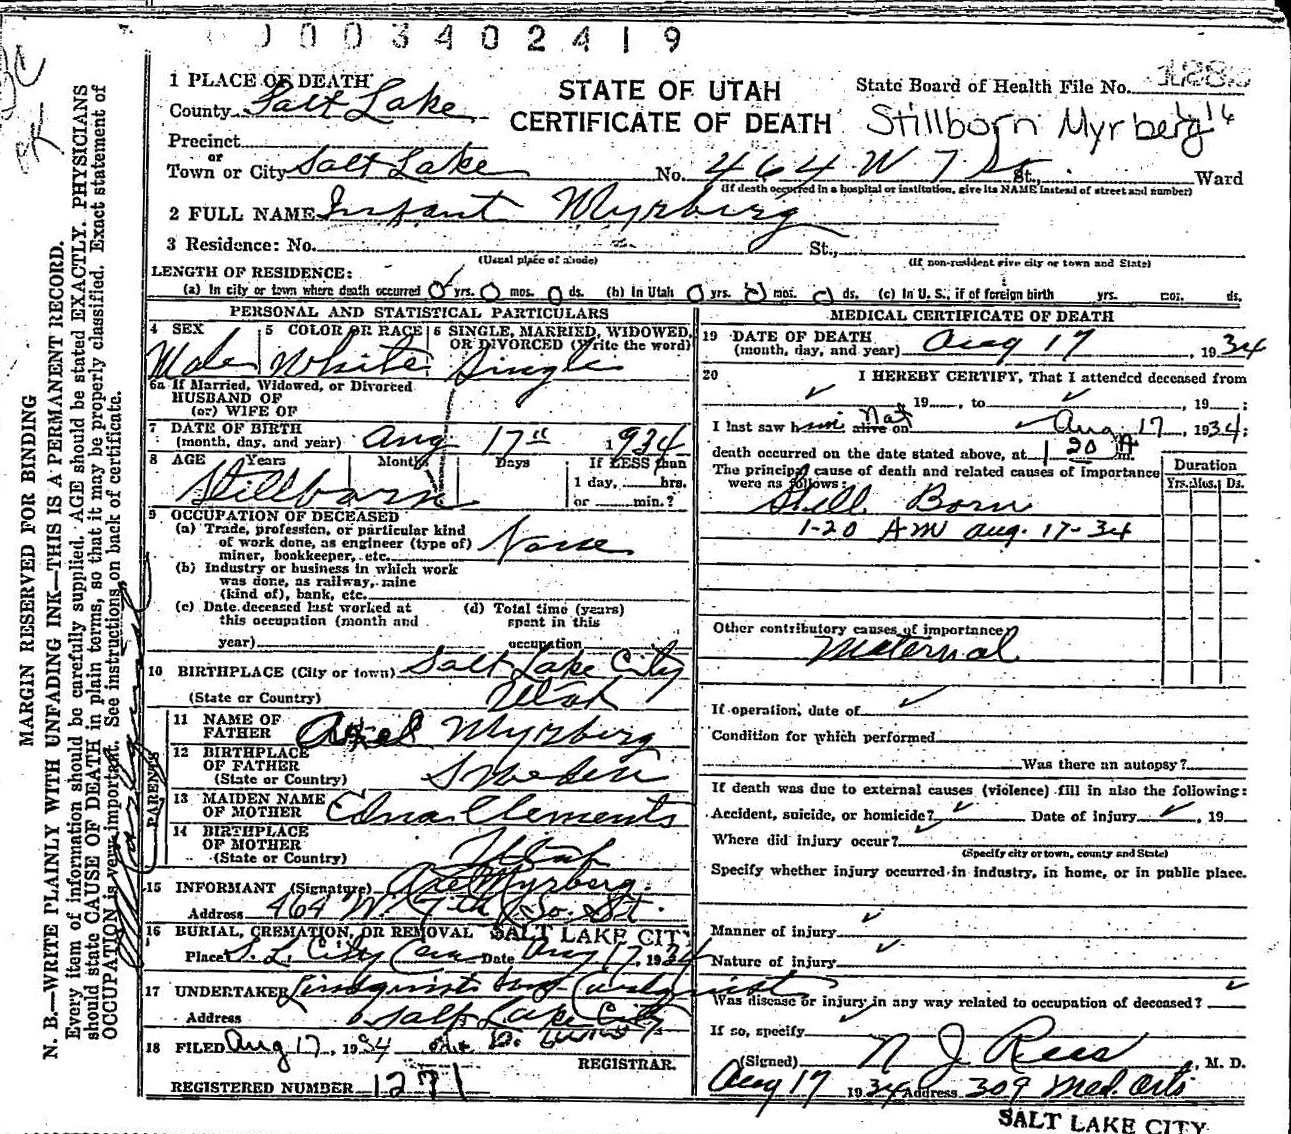 0003402419
1 PLACE OF DEATH
County Salt Lake
STATE OF UTAH
CERTIFICATE OF DEATH
State Board of Health File No. 128
Stillborn Myrberg
Precinct
or
Town or City Salt Lake No. 464 W 7 St., Ward
(If death occurred in a hospital or institution, give its NAME instead of street and number)
2 FULL NAME Infant Myrberg
3 Residence: No. St.,
(Usual place of abode) (If non-resident give city or town and State)
LENGTH OF RESIDENCE:
(a) In city or town where death occurred 0 yrs. 0 mos. 0 ds. (b) In Utah 0 yrs. 0 mos. 0 ds. (c) In U. S., if of foreign birth yrs. mos. ds.
PERSONAL AND STATISTICAL PARTICULARS
4 SEX
Male
5 COLOR OR RACE
White
6 SINGLE, MARRIED, WIDOWED,
OR DIVORCED (Write the word)
Single
6a If Married, Widowed, or Divorced
HUSBAND OF
(or) WIFE OF
7 DATE OF BIRTH
(month, day, and year) Aug 17th 1934
8 AGE Years Months Days If LESS than
1 day, hrs.
or min.?
Stillborn
9 OCCUPATION OF DECEASED
(a) Trade, profession, or particular kind
of work done, as engineer (type of)
miner, bookkeeper, etc. None
(b) Industry or business in which work
was done, as railway, mine
(kind of), bank, etc.
(c) Date deceased last worked at
this occupation (month and
year)
(d) Total time (years)
spent in this
occupation
10 BIRTHPLACE (City or town) Salt Lake City
(State or Country) Utah
PARENTS
11 NAME OF
FATHER Axel Myrberg
12 BIRTHPLACE
OF FATHER
(State or Country) Sweden
13 MAIDEN NAME
OF MOTHER Edna Clements
14 BIRTHPLACE
OF MOTHER
(State or Country) Utah
15 INFORMANT (Signature) Axel Myrberg
Address 464 W. 7th So. St.
16 BURIAL, CREMATION, OR REMOVAL SALT LAKE CITY
Place S. L. City Cem Date Aug 17, 1934
17 UNDERTAKER Lindquist
Address Salt Lake City
18 FILED Aug 17, 1934
REGISTRAR.
REGISTERED NUMBER 1271
MEDICAL CERTIFICATE OF DEATH
19 DATE OF DEATH
(month, day, and year) Aug 17, 1934
20 I HEREBY CERTIFY, That I attended deceased from
, 19 , to , 19 :
I last saw him Not alive on Aug 17, 1934:
death occurred on the date stated above, at 1 20 A m.
The principal cause of death and related causes of importance
were as follows:
Duration
Yrs. Mos. Ds.
Still Born
1-20 AM Aug. 17-34
Other contributory causes of importance:
Maternal
If operation, date of
Condition for which performed
Was there an autopsy?
If death was due to external causes (violence) fill in also the following:
Accident, suicide, or homicide? Date of injury , 19
Where did injury occur?
(Specify city or town, county and State)
Specify whether injury occurred in industry, in home, or in public place.
Manner of injury
Nature of injury
Was disease or injury in any way related to occupation of deceased?
If so, specify
(Signed) N J Rees, M. D.
Aug 17 1934 Address 309 Med. Arts
SALT LAKE CITY
MARGIN RESERVED FOR BINDING
N. B.—WRITE PLAINLY WITH UNFADING INK—THIS IS A PERMANENT RECORD.
Every item of information should be carefully supplied. AGE should be stated EXACTLY. PHYSICIANS
should state CAUSE OF DEATH in plain terms, so that it may be properly classified. Exact statement of
OCCUPATION is very important. See instructions on back of certificate.